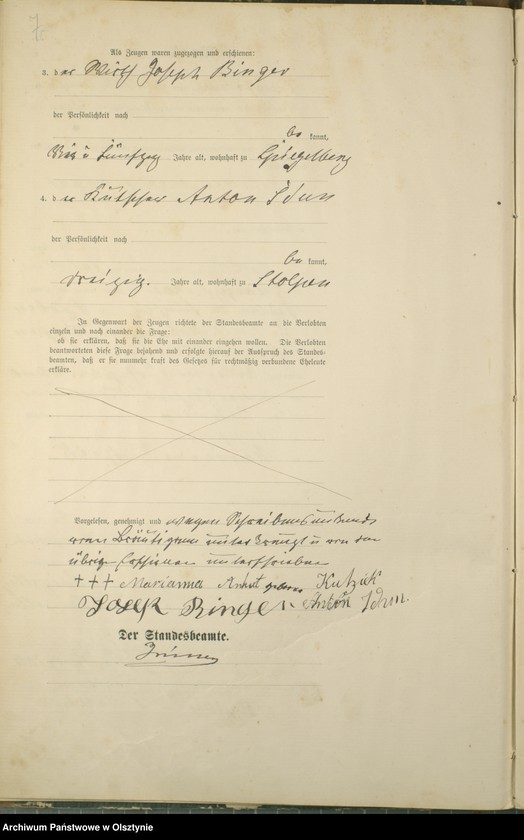 7
Als Zeugen waren zugezogen und erschienen:
3. der Wirth Joseph Binger
der Persönlichkeit nach
be kannt,
Jahre alt, wohnhaft zu Spiegelberg
4. der Kutscher Anton
der Persönlichkeit nach
be kannt,
dreißig. Jahre alt, wohnhaft zu Stolpen
In Gegenwart der Zeugen richtete der Standesbeamte an die Verlobten
einzeln und nach einander die Frage:
ob sie erklären, daß sie die Ehe mit einander eingehen wollen. Die Verlobten
beantworteten diese Frage bejahend und erfolgte hierauf der Ausspruch des Standes-
beamten, daß er sie nunmehr kraft des Gesetzes für rechtmäßig verbundene Eheleute
erkläre.
Vorgelesen, genehmigt und wegen Schreibensunkunde
vom Bräutigam unterkreuzt u von den
übrigen Personen unterschrieben
+++ Marianna geborne
Joseph Binger. Anton
Der Standesbeamte.
Archiwum Państwowe w Olsztynie